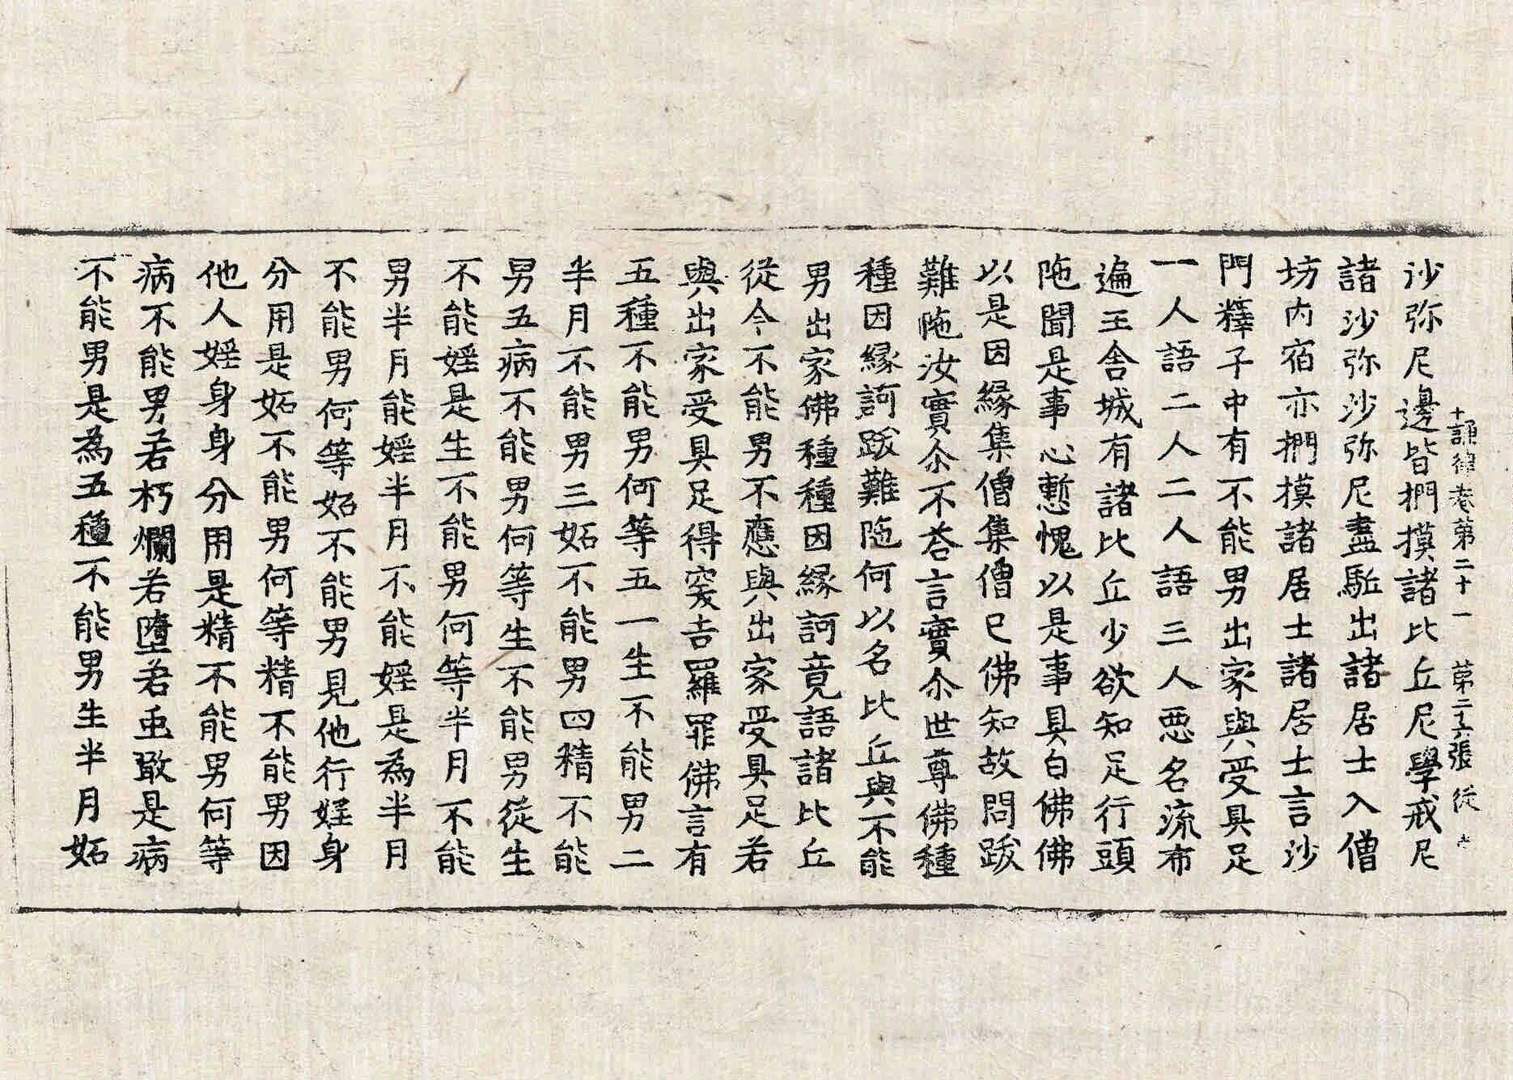 十誦律卷第二十一　第二十六張　從
沙弥尼邊皆捫摸諸比丘尼學戒尼
諸沙弥沙弥尼盡駈出諸居士入僧
坊内宿亦捫摸諸居士諸居士言沙
門釋子中有不能男出家與受具足
一人語二人二人語三人惡名流布
遍王舍城有諸比丘少欲知足行頭
陁聞是事心慙愧以是事具白佛佛
以是因縁集僧集僧已佛知故問跋
難陁汝實尒不荅言實尒世尊佛種
種因縁訶跋難陁何以名比丘與不能
男出家佛種種因縁訶竟語諸比丘
從今不能男不應與出家受具足若
與出家受具足得突吉羅罪佛言有
五種不能男何等五一生不能男二
半月不能男三妬不能男四精不能
男五病不能男何等生不能男從生
不能婬是生不能男何等半月不能
男半月能婬半月不能婬是為半月
不能男何等妬不能男見他行婬身
分用是妬不能男何等精不能男因
他人婬身身分用是精不能男何等
病不能男若朽爛若墮若虫敢是病
不能男是為五種不能男生半月妬